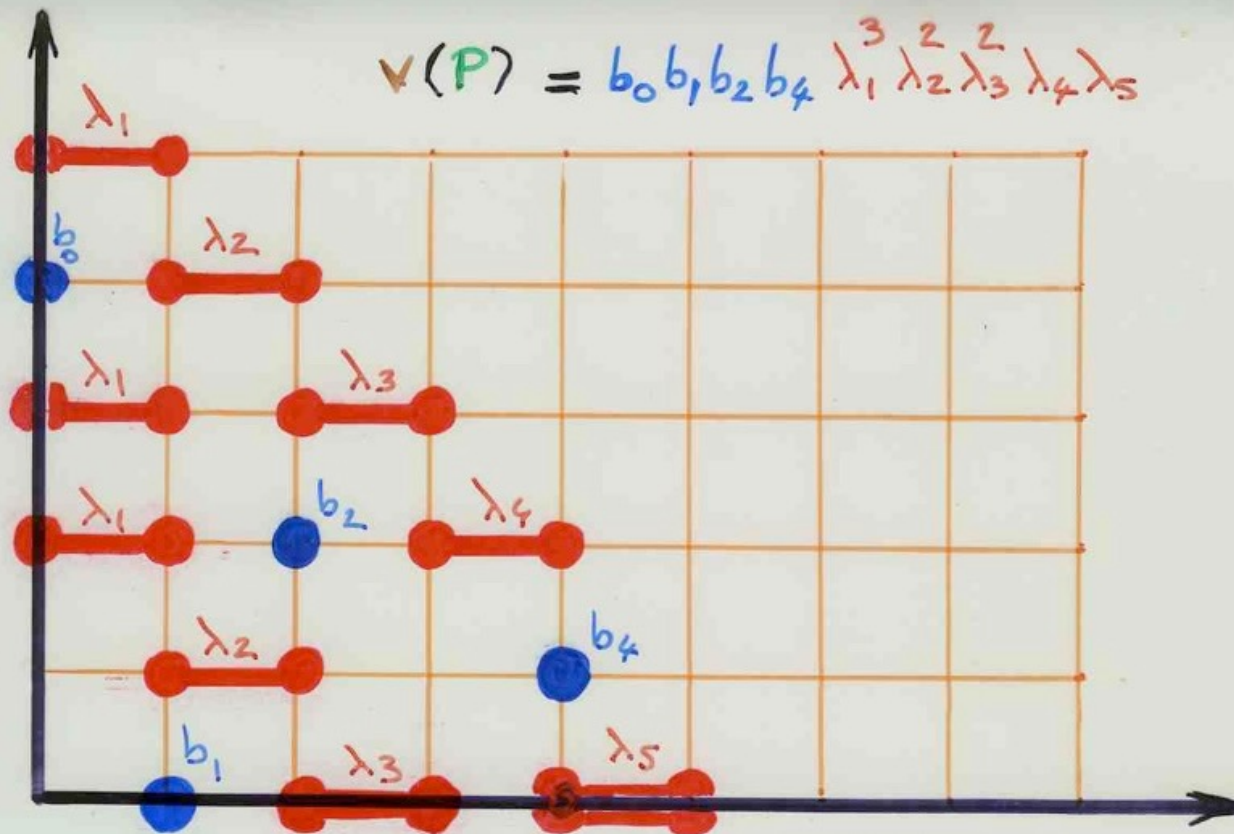 v(P) = b₀ b₁ b₂ b₄ λ₁³ λ₂² λ₃² λ₄ λ₅
λ₁
b₀ λ₂
λ₁ λ₃
λ₁ b₂ λ₄
λ₂ b₄
b₁ λ₃ λ₅